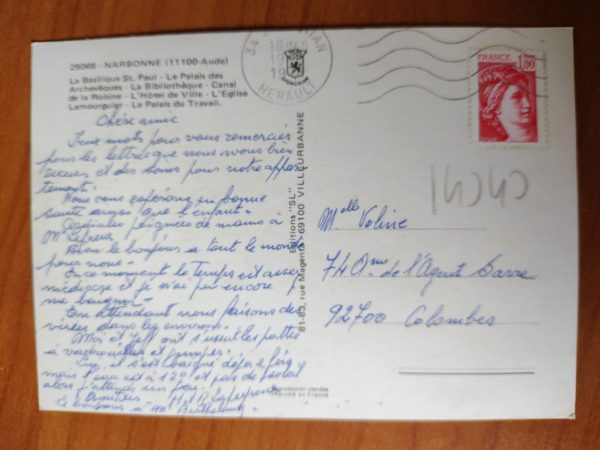 25068 - NARBONNE (11100-Aude)
La Basilique St. Paul - Le Palais des
Archevêques - La Bibliothèque - Canal
de la Robine - L'Hôtel de Ville - L'Eglise
Lamourguier - Le Palais du Travail.
Chère amie
Deux mots pour vous remercier
pour les lettres que nous avons bien
recues et des bons pour notre appar
tement.
Nous vous espérons en bonne
santé que l'enfant.
Cordiales poignées de mains à
Mr
Bien le bonjour à tout le monde
pour nous.
En ce moment le Temps est assez
médiocre et je n'ai pu encore
me baigner.
En attendant nous faisons des
virées dans les environs.
Moi et Jeff ont
à
Lui, il s'est baigné déjà 2 fois
mais l'eau est à 12° et pas de soleil
alors j'attends un peu.
Amitiés
Le bonjour à Me
Editions "SL"
81-83, rue Magenta - 69100 VILLEURBANNE
Reproduction interdite
34
18
19
HERAULT
FRANCE
1,00
14040
Melle Voline
74 Ave de l'Agent Sarre
92700 Colombes